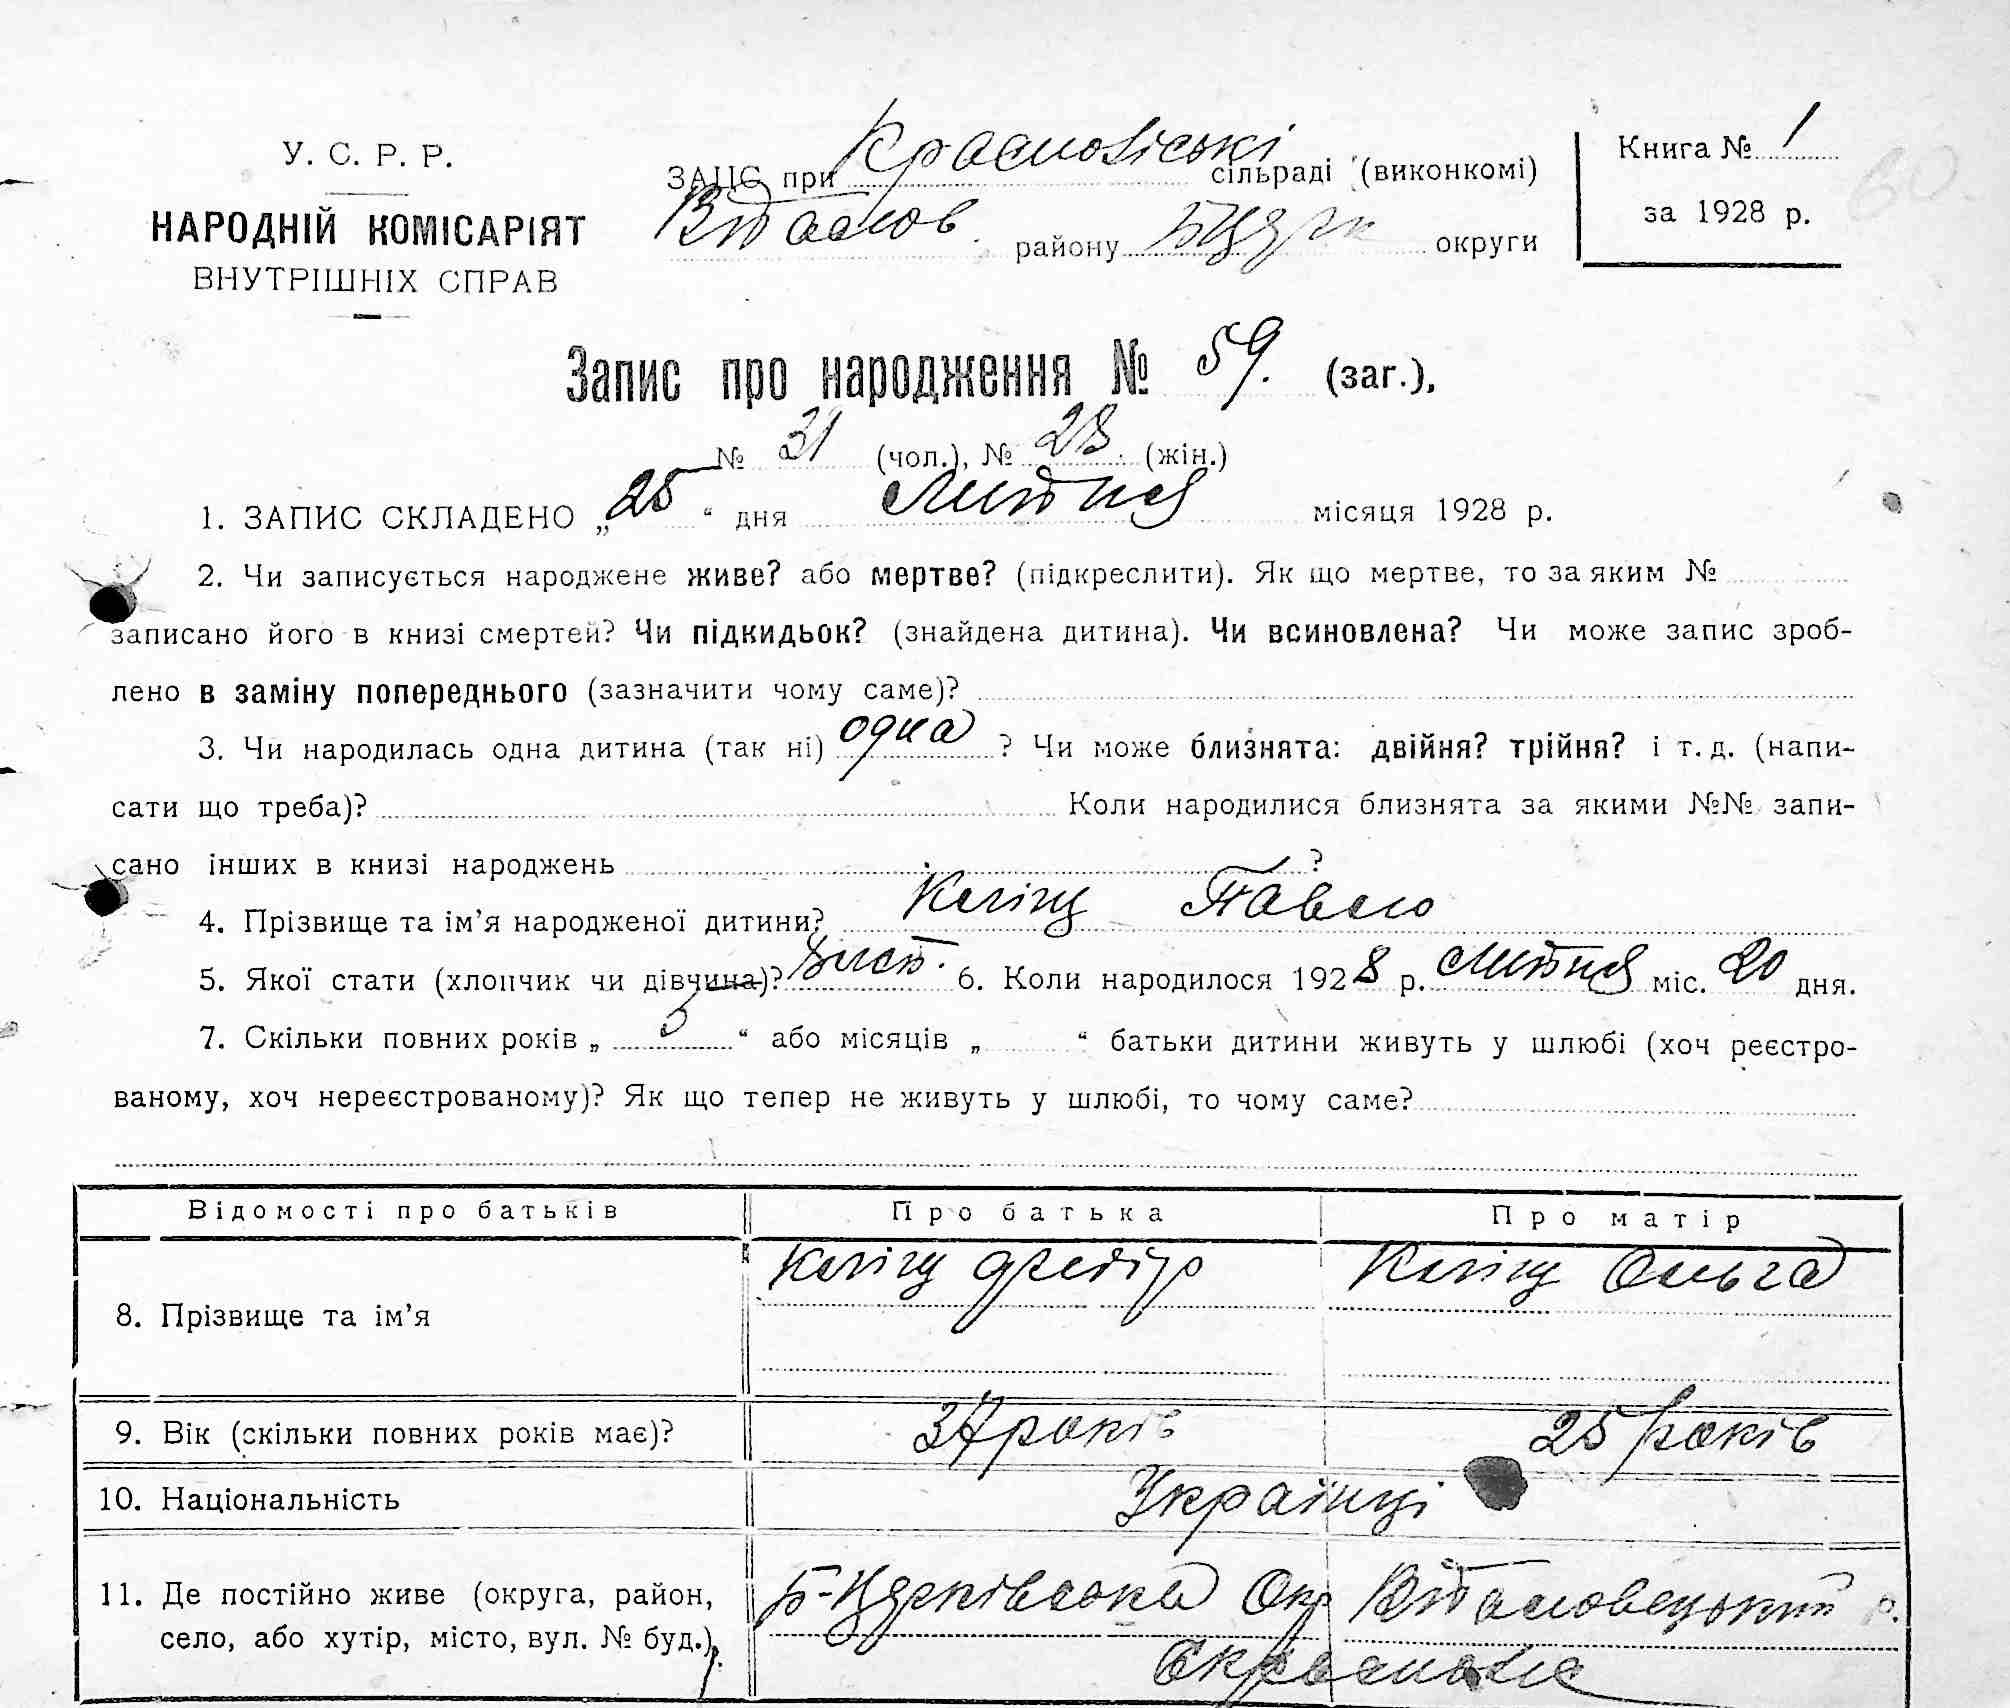 У. С. Р. Р.
НАРОДНІЙ КОМІСАРІЯТ
ВНУТРІШНІХ СПРАВ
ЗАПС при сільраді (виконкомі)
району округи
Книга № 1
за 1928 р.
Запис про народження № 59. (заг.),
№ 31 (чол.), № 28 (жін.)
1. ЗАПИС СКЛАДЕНО „25“ дня Липня місяця 1928 р.
2. Чи записується народжене живе? або мертве? (підкреслити). Як що мертве, то за яким №
записано його в книзі смертей? Чи підкидьок? (знайдена дитина). Чи всиновлена? Чи може запис зроб-
лено в заміну попереднього (зазначити чому саме)?
3. Чи народилась одна дитина (так ні) одна ? Чи може близнята: двійня? трійня? і т. д. (напи-
сати що треба)? Коли народилися близнята за якими №№ запи-
сано інших в книзі народжень ?
4. Прізвище та ім’я народженої дитини? Павло
5. Якої стати (хлопчик чи дівчина)? 6. Коли народилося 1928 р. Липня міс. 20 дня.
7. Скільки повних років „ 5 “ або місяців „ “ батьки дитини живуть у шлюбі (хоч реєстро-
ваному, хоч нереєстрованому)? Як що тепер не живуть у шлюбі, то чому саме?
Відомості про батьків Про батька Про матір
8. Прізвище та ім’я Ольга
9. Вік (скільки повних років має)? років 25 років
10. Національність Українці
11. Де постійно живе (округа, район, Б-Церківська Окр р.
село, або хутір, місто, вул. № буд.)